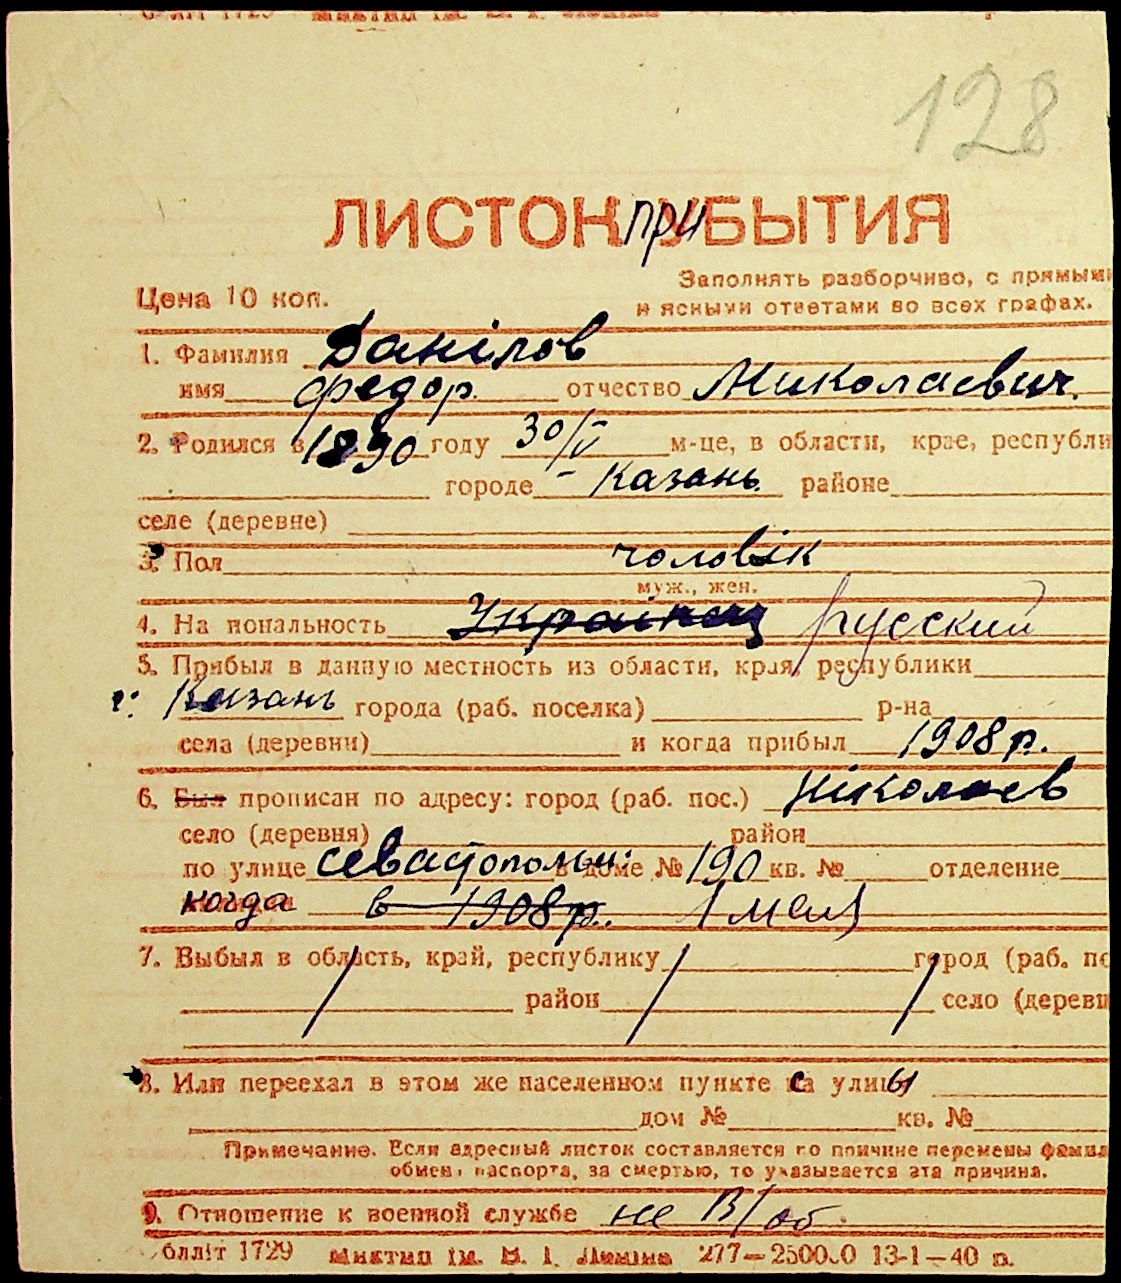 128
ЛИСТОК ПРИБЫТИЯ
Цена 10 коп.
Заполнять разборчиво, с прямыми
и ясными ответами во всех графах.
1. Фамилия Данілов
имя Федор. отчество Миколаевич.
2. Родился в 1890 году 30/V м-це, в области, крае, республи
городе - Казань. районе
селе (деревне)
3. Пол чоловік
муж., жен.
4. Национальность Українец Русский
5. Прибыл в данную местность из области, края, республики
г. Казань города (раб. поселка) р-на
села (деревни) и когда прибыл 1908 р.
6. Был прописан по адресу: город (раб. пос.) Ніколаев
село (деревня) район
по улице Севастопольш: в доме № 190 кв. № отделение
когда в 1908 р.
7. Выбыл в область, край, республику город (раб. по
район село (деревн
8. Или переехал в этом же населенном пункте с улицы
дом № кв. №
Примечание. Если адресный листок составляется по причине перемены фамил
обмена паспорта, за смертью, то указывается эта причина.
9. Отношение к военной службе не В/об.
Облліт 1729 Миктип ім. В. І. Леніна 277—250000 13-1—40 р.